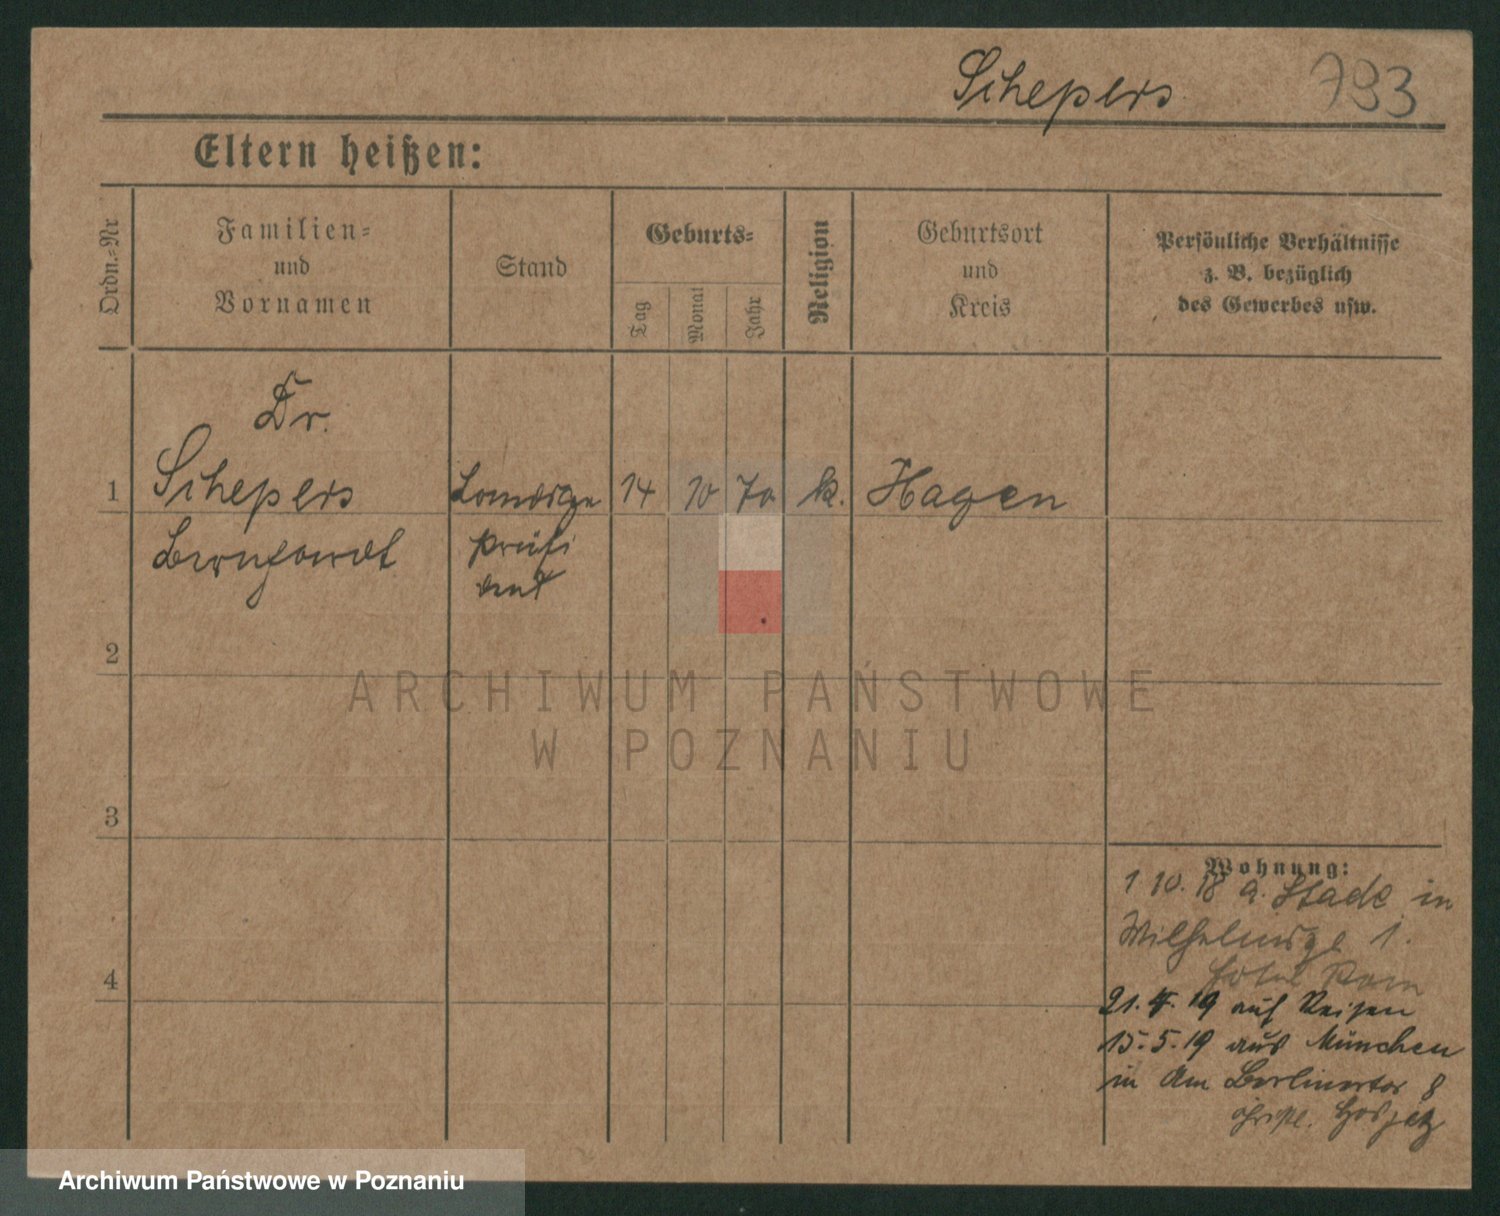 Schepers 793
Eltern heißen:
Ordn.-Nr
Familien-
und
Vornamen
Stand
Geburts-
Tag
Monat
Jahr
Religion
Geburtsort
und
Kreis
Persönliche Verhältnisse
z. B. bezüglich
des Gewerbes usw.
Dr.
1 Schepers 14 10 70 k. Hagen
Bernhardt präsi
dent
2
3
4
Wohnung:
1 10. 18 a. Stade in
Wilhelmsge 1.
Hotel Rom
21. 4. 19 auf Reisen
15. 5. 19 aus München
in Am Berlinertor 8
ARCHIWUM PAŃSTWOWE
W POZNANIU
Archiwum Państwowe w Poznaniu